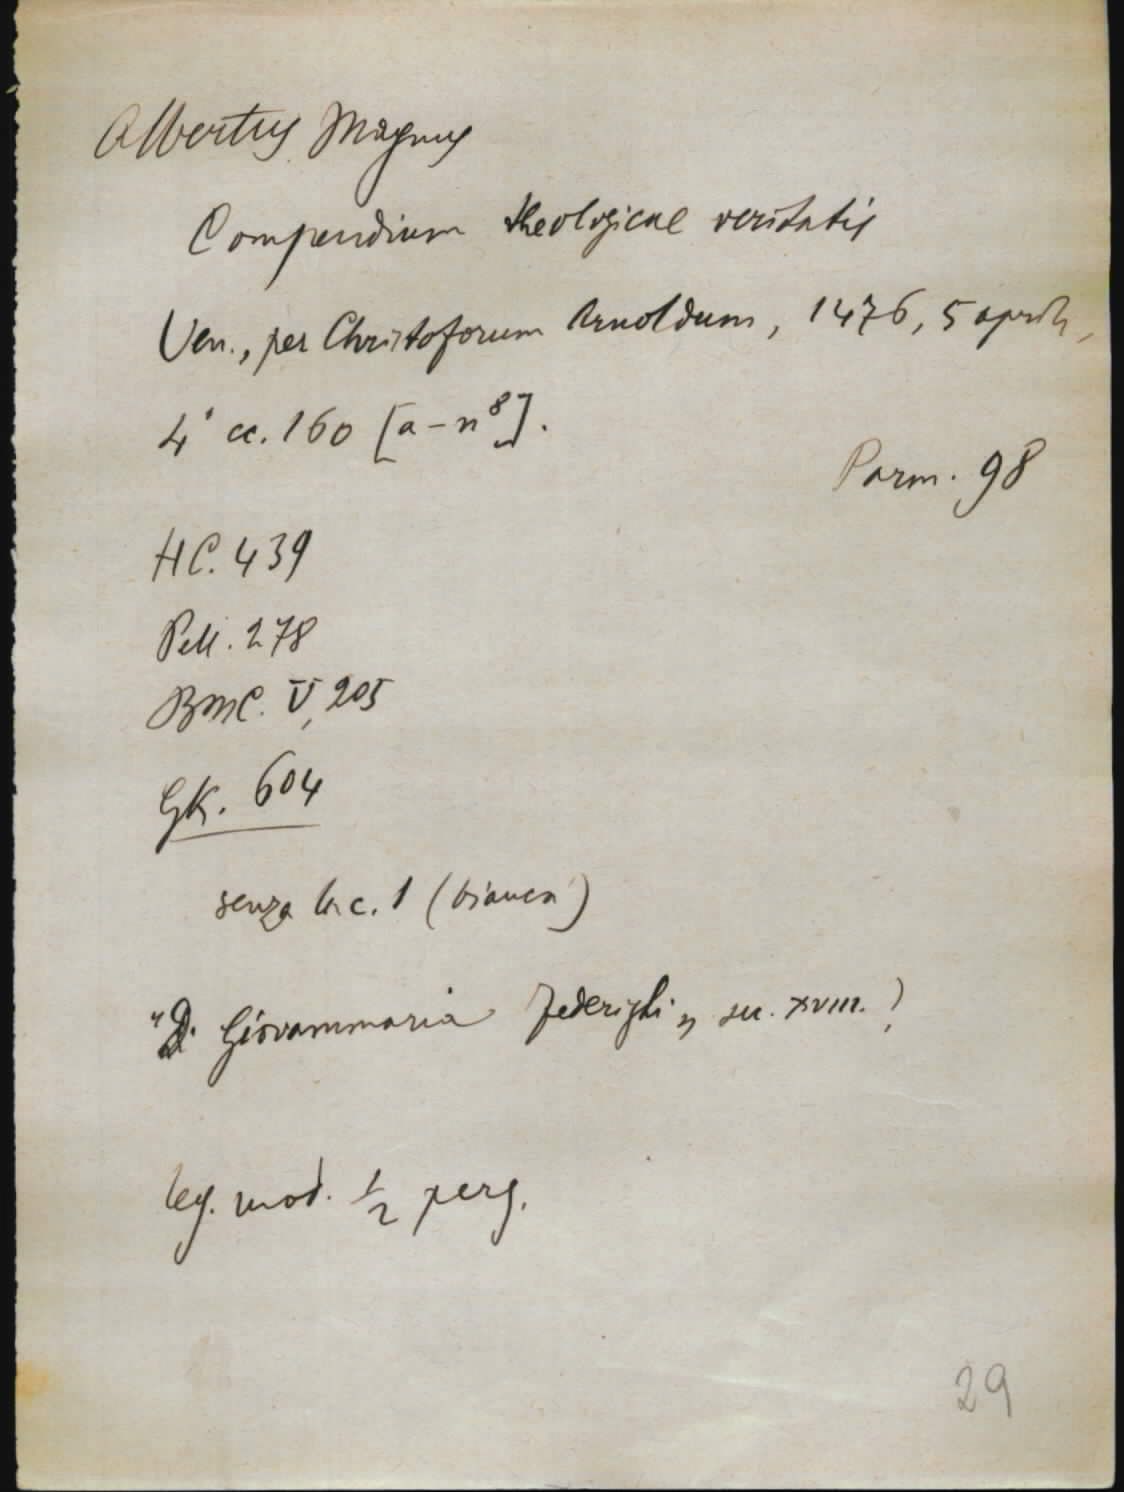 Albertus Magnus
Compendium theologicae veritatis
Ven., per Christoforum Arnoldum, 1476, 5 aprile,
4° cc. 160 [a-n⁸].
Parm. 98
HC. 439
Pell. 278
BMC. V, 205
GK. 604
senza la c. 1 (bianca)
"D. Giovammaria Federighi" sec. XVIII. ?
leg. mod. ½ perg.
29